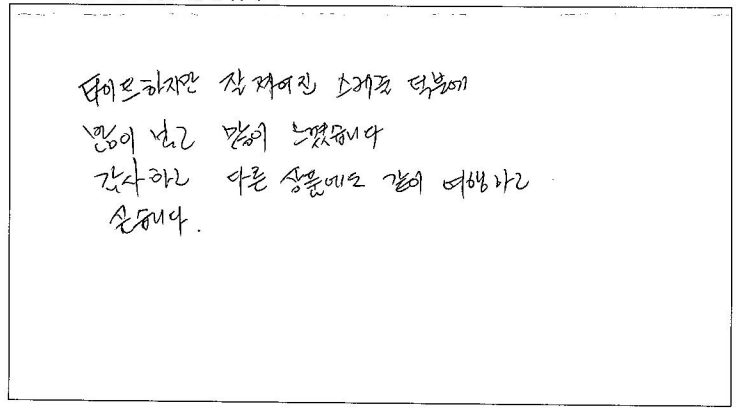 타이트하지만 잘 짜여진 스케줄 덕분에
많이 보고 많이 느꼈습니다
감사하고 다른 상품에도 같이 여행하고
싶습니다.